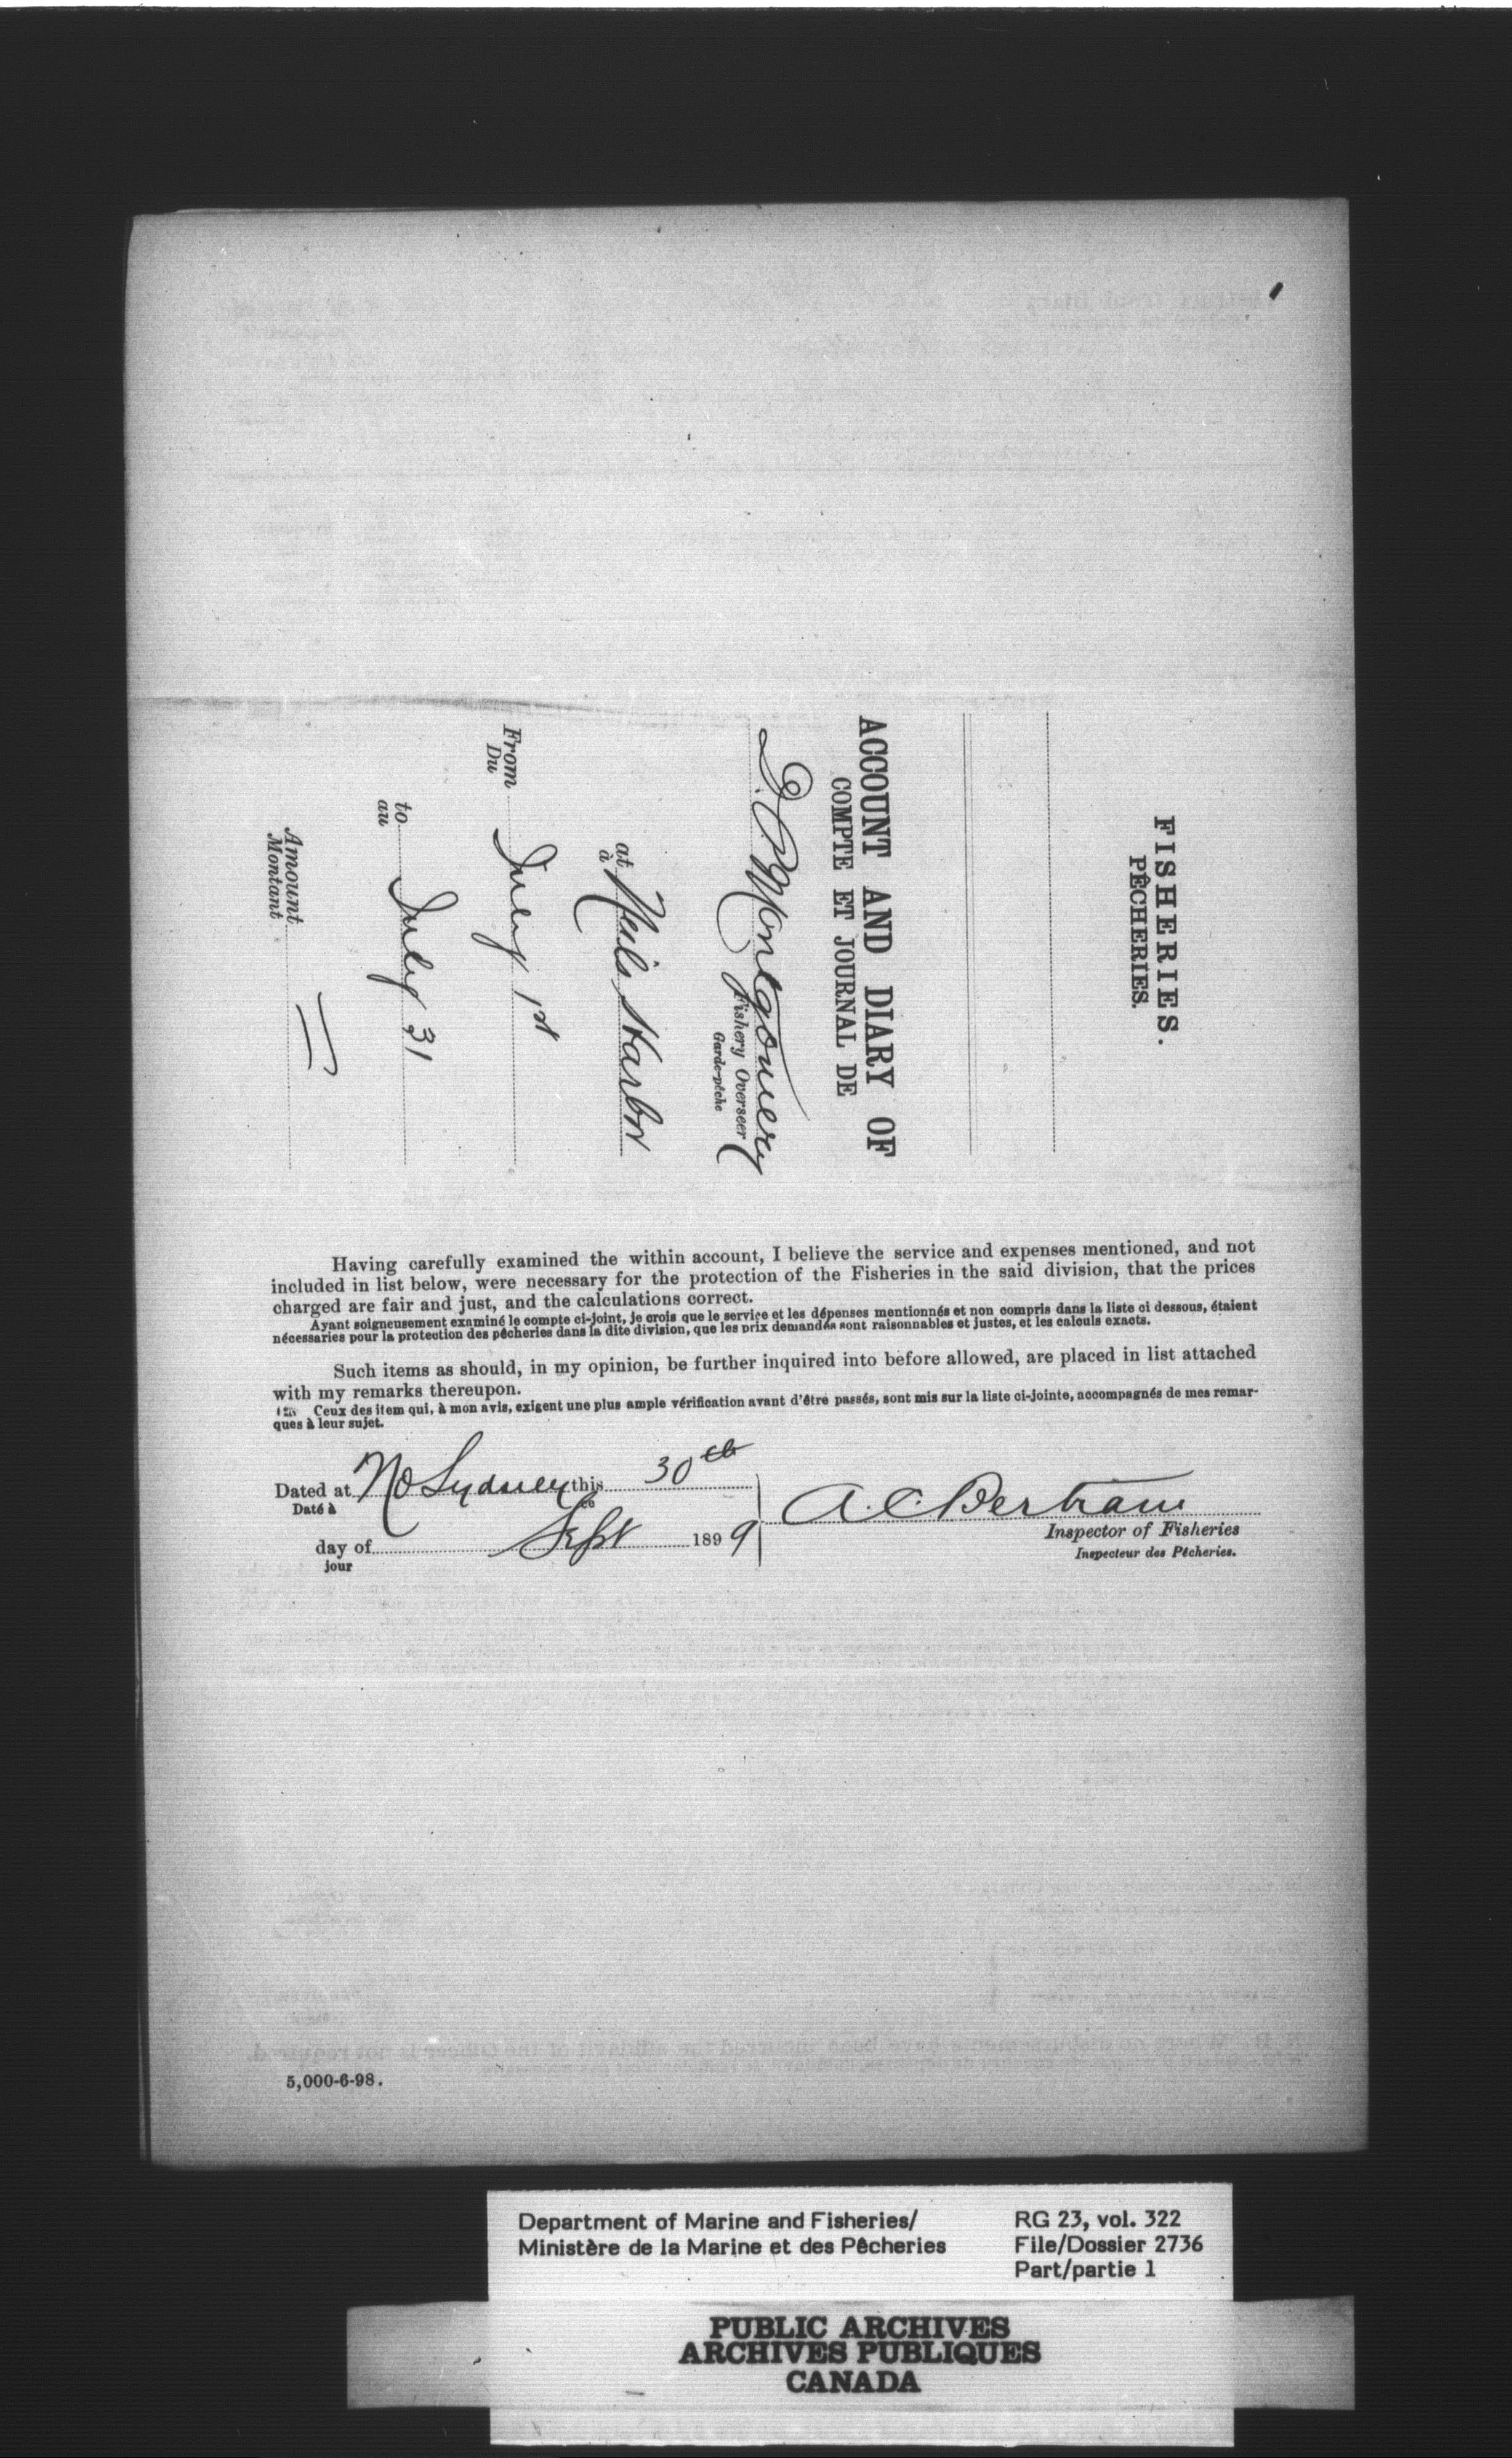 FISHERIES.
PÊCHERIES.
ACCOUNT AND DIARY OF
COMPTE ET JOURNAL DE
D. Montgomery
Fishery Overseer
Garde-pêche
at Neils Harbor
à
From July 1st
Du
to July 31
au
Amount
Montant
Having carefully examined the within account, I believe the service and expenses mentioned, and not
included in list below, were necessary for the protection of the Fisheries in the said division, that the prices
charged are fair and just, and the calculations correct.
Ayant soigneusement examiné le compte ci-joint, je crois que le service et les dépenses mentionnés et non compris dans la liste ci dessous, étaient
nécessaries pour la protection des pêcheries dans la dite division, que les prix demandés sont raisonnables et justes, et les calculs exacts.
Such items as should, in my opinion, be further inquired into before allowed, are placed in list attached
with my remarks thereupon.
Ceux des item qui, à mon avis, exigent une plus ample vérification avant d'être passés, sont mis sur la liste ci-jointe, accompagnés de mes remar-
ques à leur sujet.
Dated at No Sydney this 30th
Daté à ce
day of Sept 1899
jour
A. C. Bertram
Inspector of Fisheries
Inspecteur des Pêcheries.
5,000-6-98.
Department of Marine and Fisheries/
Ministère de la Marine et des Pêcheries
RG 23, vol. 322
File/Dossier 2736
Part/partie 1
PUBLIC ARCHIVES
ARCHIVES PUBLIQUES
CANADA